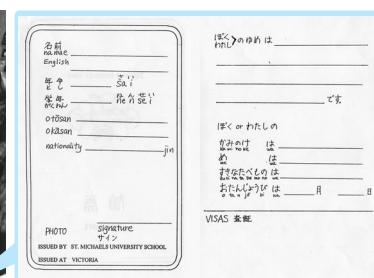 名前
namae
English
年令 さい
とし sai
学年 ねんせい
がくねん nensei
otōsan
okāsan
nationality jin
PHOTO signature
サイン
ISSUED BY ST. MICHAELS UNIVERSITY SCHOOL
ISSUED AT VICTORIA
ぼく
わたし のゆめ は
です
ぼく or わたしの
かみのけ は
め は
すきなたべもの は
おたんじょうび は 月 日
VISAS 査証